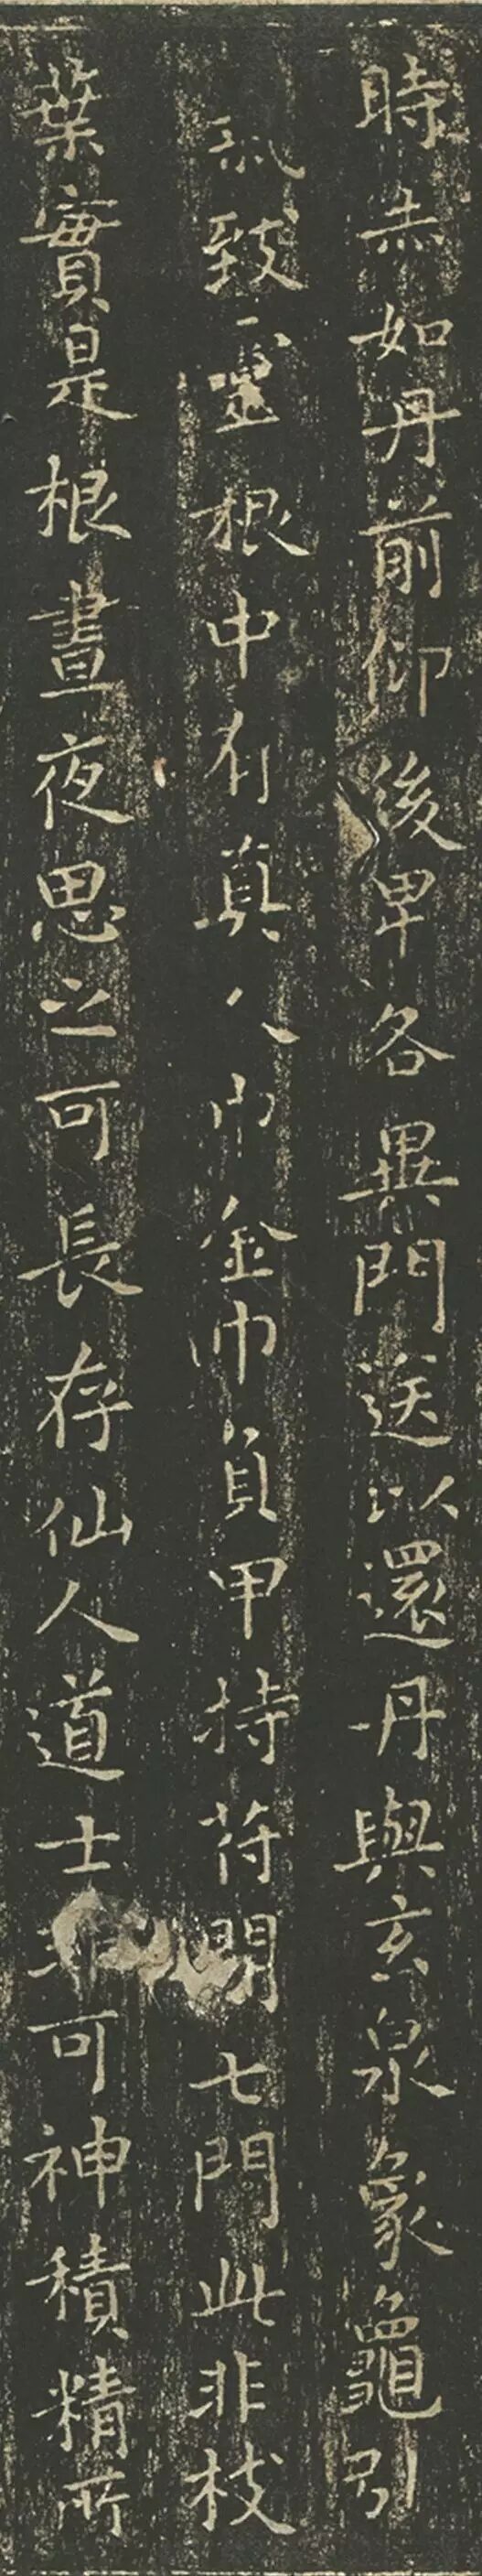 時赤如丹前仰後卑各異門送以還丹與玄泉象龜引
氣致靈根中有真人巾金巾負甲持符開七門此非枝
葉實是根晝夜思之可長存仙人道士非可神積精所